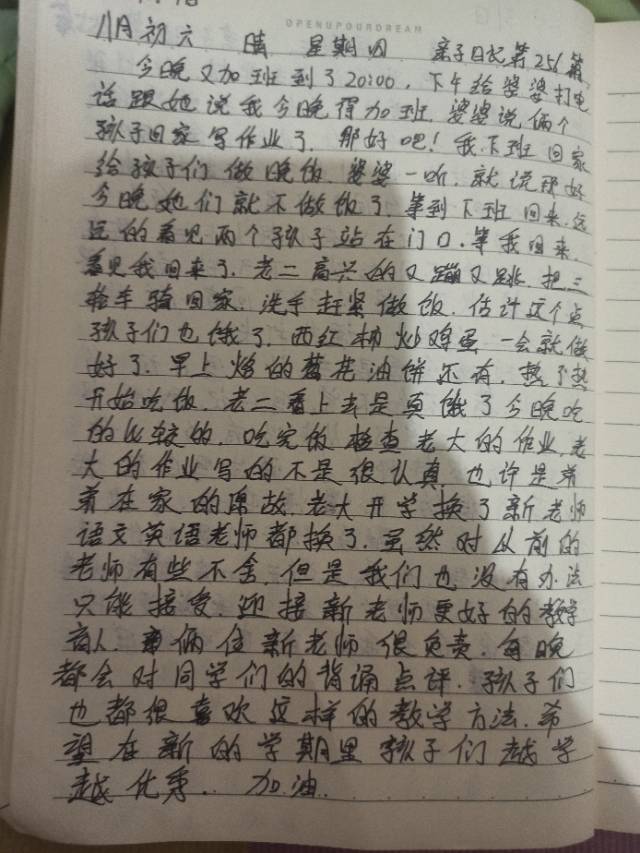 OPENUPOURDREAM
八月初六 晴 星期四 亲子日记第256篇
今晚又加班到了20:00,下午给婆婆打电
话跟她说我今晚得加班,婆婆说俩个
孩子回家写作业了,那好吧!我下班回家
给孩子们做晚饭,婆婆一听,就说那好
今晚她们就不做饭了,等到下班回来,远
远的看见两个孩子站在门口,等我回来,
看见我回来了,老二高兴的又蹦又跳,把三
轮车骑回家,洗手赶紧做饭,估计这个点
孩子们也饿了,西红柿炒鸡蛋一会就做
好了,早上烙的葱花油饼还有,热了热
开始吃饭,老二看上去是真饿了今晚吃
的比较的,吃完的检查老大的作业,老
大的作业写的不是很认真,也许是弟
弟在家的原故,老大开学换了新老师
语文英语老师都换了,虽然对从前的
老师有些不舍,但是我们也没有办法
只能接受,迎接新老师更好的教学
育人,俩位新老师很负责,每晚
都会对同学们的背诵点评,孩子们
也都很喜欢这样的教学方法,希
望在新的学期里孩子们越学
越优秀..加油.